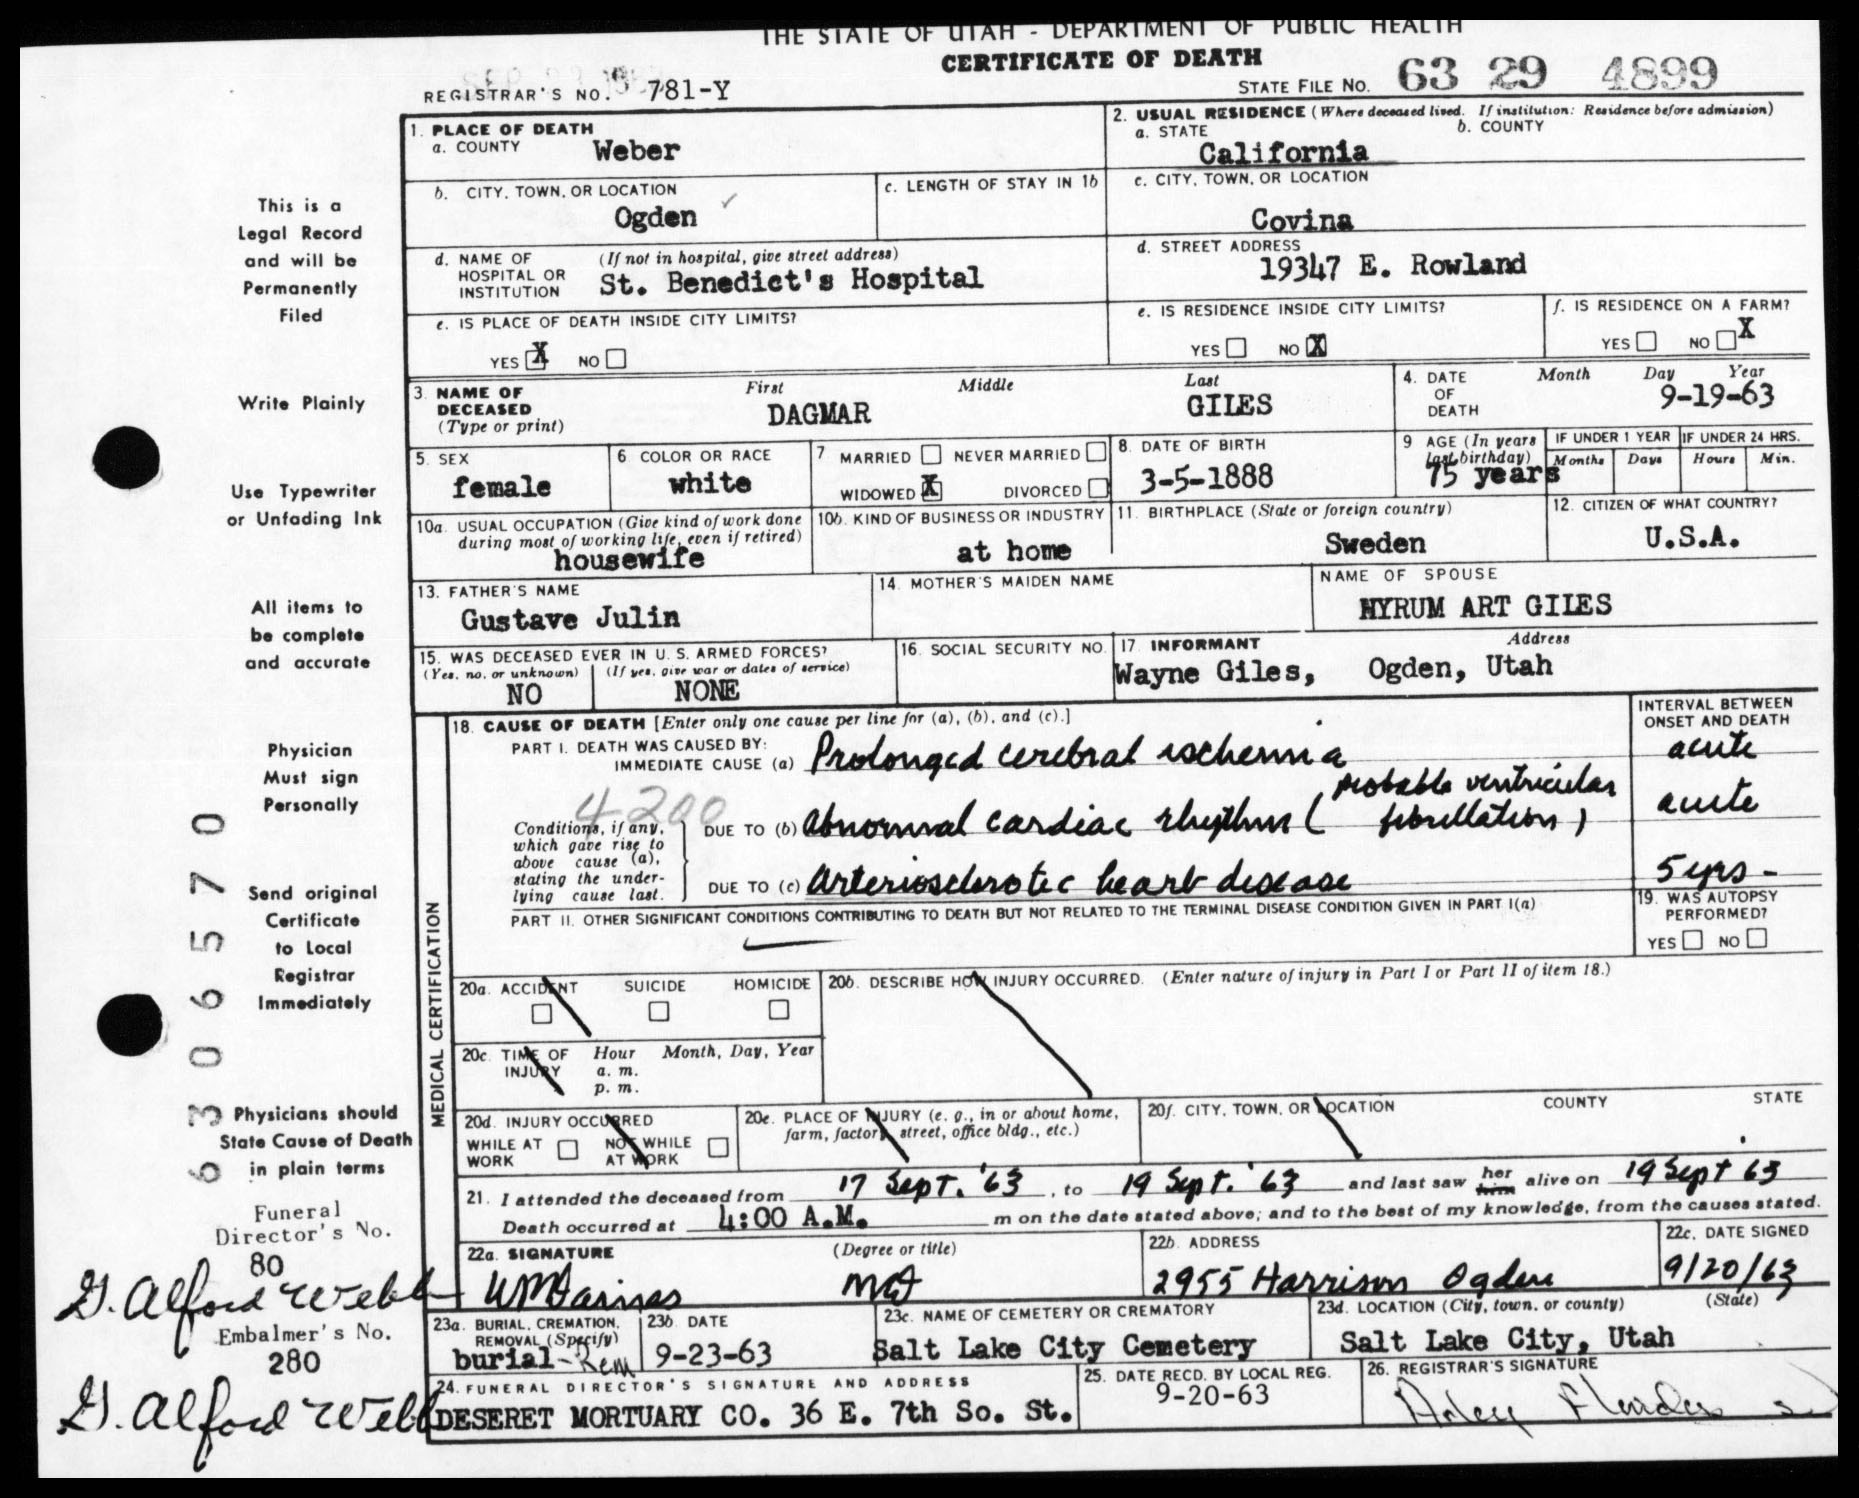 THE STATE OF UTAH - DEPARTMENT OF PUBLIC HEALTH
CERTIFICATE OF DEATH
REGISTRAR'S NO. 781-Y
STATE FILE NO. 63 29 4899
1. PLACE OF DEATH
a. COUNTY Weber
2. USUAL RESIDENCE (Where deceased lived. If institution: Residence before admission)
a. STATE California b. COUNTY
b. CITY, TOWN, OR LOCATION Ogden
c. LENGTH OF STAY IN 1b
c. CITY, TOWN, OR LOCATION Covina
d. NAME OF HOSPITAL OR INSTITUTION (If not in hospital, give street address)
St. Benedict's Hospital
d. STREET ADDRESS
19347 E. Rowland
e. IS PLACE OF DEATH INSIDE CITY LIMITS?
YES X NO
e. IS RESIDENCE INSIDE CITY LIMITS?
YES NO X
f. IS RESIDENCE ON A FARM?
YES NO X
3. NAME OF DECEASED (Type or print)
First Middle Last
DAGMAR GILES
4. DATE OF DEATH Month Day Year
9-19-63
5. SEX
female
6 COLOR OR RACE
white
7 MARRIED NEVER MARRIED
WIDOWED X DIVORCED
8. DATE OF BIRTH
3-5-1888
9 AGE (In years last birthday)
75 years
IF UNDER 1 YEAR
Months Days
IF UNDER 24 HRS.
Hours Min.
10a. USUAL OCCUPATION (Give kind of work done during most of working life, even if retired)
housewife
10b. KIND OF BUSINESS OR INDUSTRY
at home
11. BIRTHPLACE (State or foreign country)
Sweden
12. CITIZEN OF WHAT COUNTRY?
U.S.A.
13. FATHER'S NAME
Gustave Julin
14. MOTHER'S MAIDEN NAME
NAME OF SPOUSE
HYRUM ART GILES
15. WAS DECEASED EVER IN U.S. ARMED FORCES?
(Yes, no, or unknown) (If yes, give war or dates of service)
NO NONE
16. SOCIAL SECURITY NO.
17 INFORMANT Address
Wayne Giles, Ogden, Utah
MEDICAL CERTIFICATION
18. CAUSE OF DEATH [Enter only one cause per line for (a), (b), and (c).]
INTERVAL BETWEEN ONSET AND DEATH
PART I. DEATH WAS CAUSED BY:
IMMEDIATE CAUSE (a) Prolonged cerebral ischemia acute
4200
Conditions, if any, which gave rise to above cause (a), stating the underlying cause last.
DUE TO (b) Abnormal cardiac rhythm (probable ventricular fibrillation) acute
DUE TO (c) Arteriosclerotic heart disease 5 yrs -
PART II. OTHER SIGNIFICANT CONDITIONS CONTRIBUTING TO DEATH BUT NOT RELATED TO THE TERMINAL DISEASE CONDITION GIVEN IN PART I(a)
19. WAS AUTOPSY PERFORMED?
YES NO
20a. ACCIDENT SUICIDE HOMICIDE
20b. DESCRIBE HOW INJURY OCCURRED. (Enter nature of injury in Part I or Part II of item 18.)
20c. TIME OF INJURY Hour Month, Day, Year
a. m.
p. m.
20d. INJURY OCCURRED
WHILE AT WORK NOT WHILE AT WORK
20e. PLACE OF INJURY (e. g., in or about home, farm, factory, street, office bldg., etc.)
20f. CITY, TOWN, OR LOCATION COUNTY STATE
21. I attended the deceased from 17 Sept. '63, to 19 Sept. '63 and last saw her him alive on 19 Sept 63
Death occurred at 4:00 A.M. m on the date stated above; and to the best of my knowledge, from the causes stated.
22a. SIGNATURE (Degree or title)
22b. ADDRESS
2955 Harrison Ogden
22c. DATE SIGNED
9/20/63
23a. BURIAL, CREMATION, REMOVAL (Specify)
burial-Rem
23b DATE
9-23-63
23c. NAME OF CEMETERY OR CREMATORY
Salt Lake City Cemetery
23d. LOCATION (City, town, or county) (State)
Salt Lake City, Utah
24. FUNERAL DIRECTOR'S SIGNATURE AND ADDRESS
DESERET MORTUARY CO. 36 E. 7th So. St.
25. DATE RECD. BY LOCAL REG.
9-20-63
26. REGISTRAR'S SIGNATURE
This is a
Legal Record
and will be
Permanently
Filed
Write Plainly
Use Typewriter
or Unfading Ink
All items to
be complete
and accurate
Physician
Must sign
Personally
Send original
Certificate
to Local
Registrar
Immediately
Physicians should
State Cause of Death
in plain terms
6 3 0 6 5 7 0
Funeral
Director's No.
80
G. Alford Webb
Embalmer's No.
280
G. Alford Webb